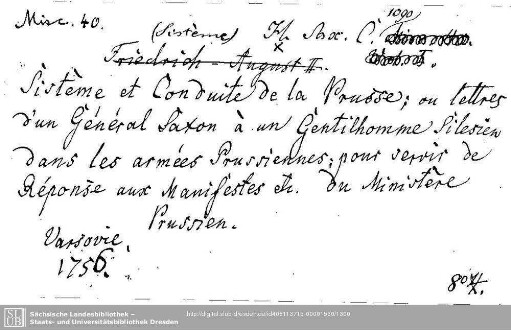 Misc. 40.
(Sistème) H. Sax. C. 1090
Friedrich - August II.
Sistème et Conduite de la Prusse; ou lettres
d'un Général Saxon à un Gentilhomme Silesien
dans les armées Prussiennes; pour servir de
Réponse aux Manifestes etc. du Ministère
Prussien.
Varsovie,
1756.
Sächsische Landesbibliothek –
Staats- und Universitätsbibliothek Dresden